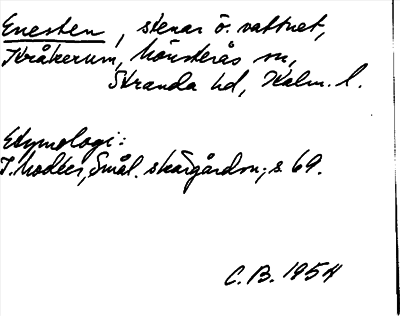 Enesten, stenar ö. vattnet,
Kråkerum, Mönsterås sn,
Stranda hd, Kalm. l.
Etymologi:
I. Modéer, Smål. skärgårdsn., s. 69.
C.B. 1954